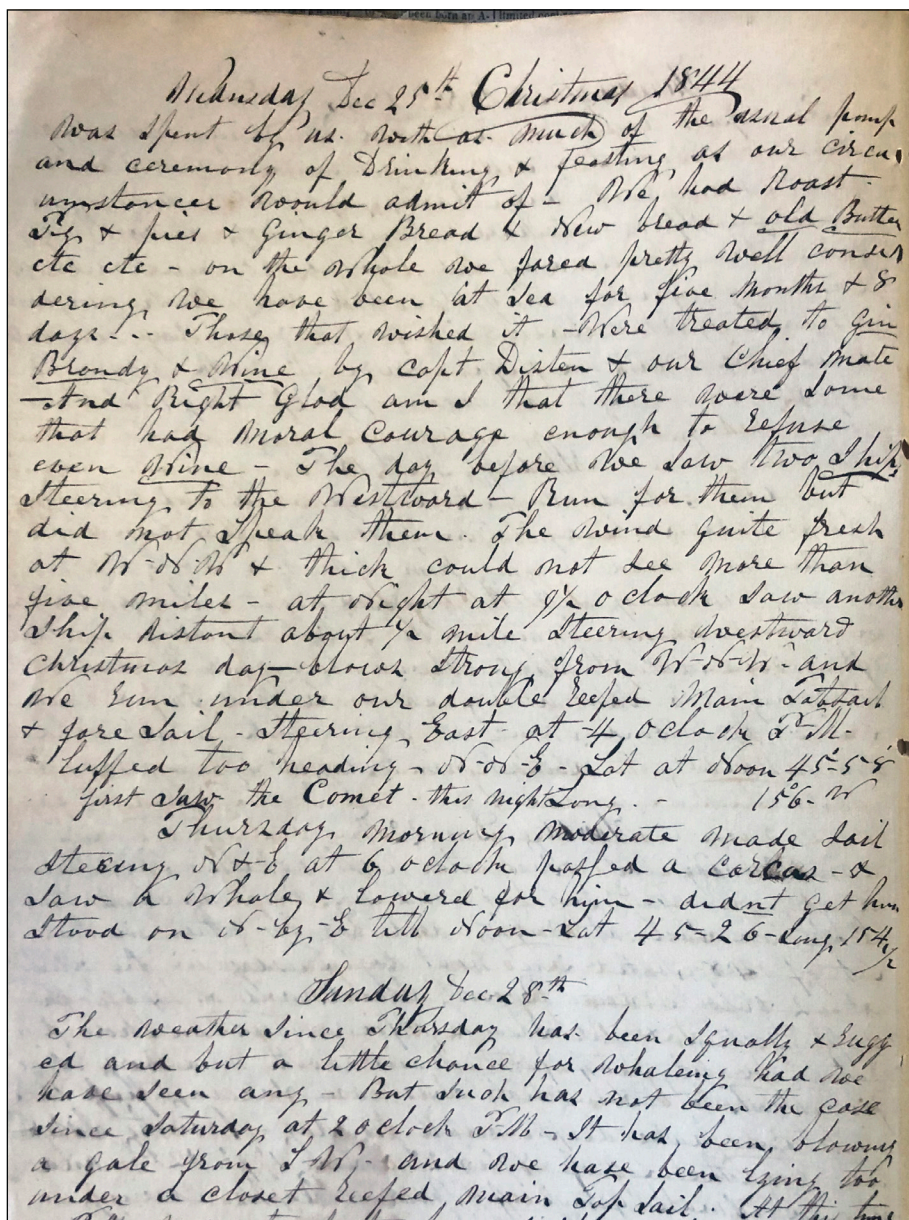 been born an A-1 limited
Wednesday Dec 25th Christmas 1844
was spent by us with as much of the usual pomp
and ceremony of Drinking & feasting as our circu
umstances would admit of - We had Roast
Pig & pies & Ginger Bread & New bread & old Butter
etc etc - on the Whole we fared pretty well consi
dering we have been at Sea for five Months & 8
days - - Those that wished it - Were treated to Gin
Brandy & Wine by capt Disten & our Chief Mate
- And Right Glad am I that there were Some
that had Moral Courage enough to Refuse
even Wine - The day before We Saw two Ships
Steering to the Westward - Run for them but
did not Speak them. The wind quite fresh
at W-N-W & thick could not see more than
five miles - at Night at o clock Saw another
Ship distant about ½ mile Steering westward
Christmas day - blows Strong from W-N-W - and
We Run under our double Reefed Main Topsail
& fore Sail - Steering East - at 4 o clock P.M.
luffed too heading - N-N-E - Lat at Noon 45-58
first Saw the Comet - this night Long. - 156 - W
Thursday Morning moderate made Sail
Steering N&E at 6 o clock passed a Carcas - &
Saw a Whale & Lowerd for him - didnt get him
Stood on N-by-E till Noon - Lat 45-26 - Long 154½
Sunday Dec 28th
The Weather Since Thursday has been Squally & Rugg
ed and but a little chance for whaleing had we
have Seen any - But Such has not been the case
Since Saturday at 2 o clock P.M - It has been blowing
a gale from S.W. - and we have been lying too
under a closet Reefed Main Top Sail. At this time